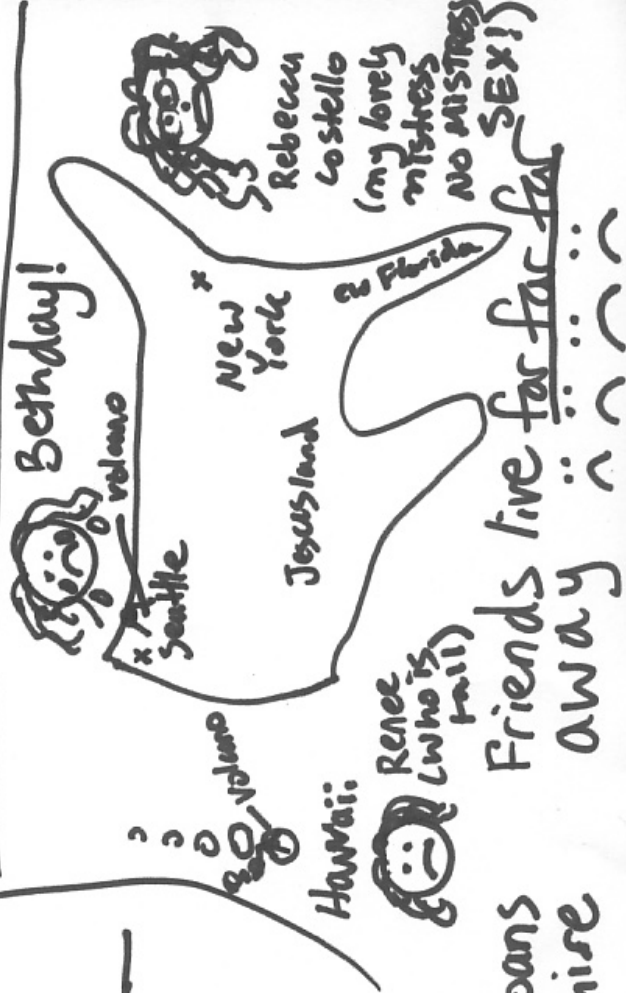 Bethday!
volcano
x
Seattle
x
New
York
Jesusland
ew Florida
Rebecca
Costello
(my lovely
mistress
NO MISTRESS
SEX!)
volcano
Hawaii
Renee
(who is
tall)
Friends live far far far
away